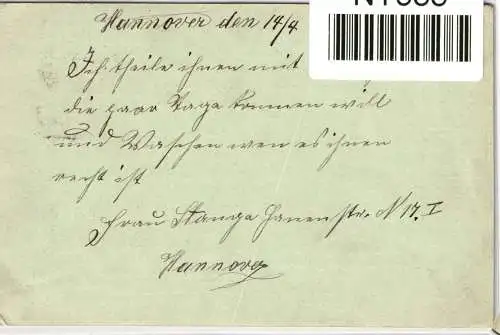 Hannover den 14/4
Ich theile ihnen mit
die paar Tage kommen will
und Waschen wen es ihnen
recht ist
Frau Stange str. N 17. I
Hannover